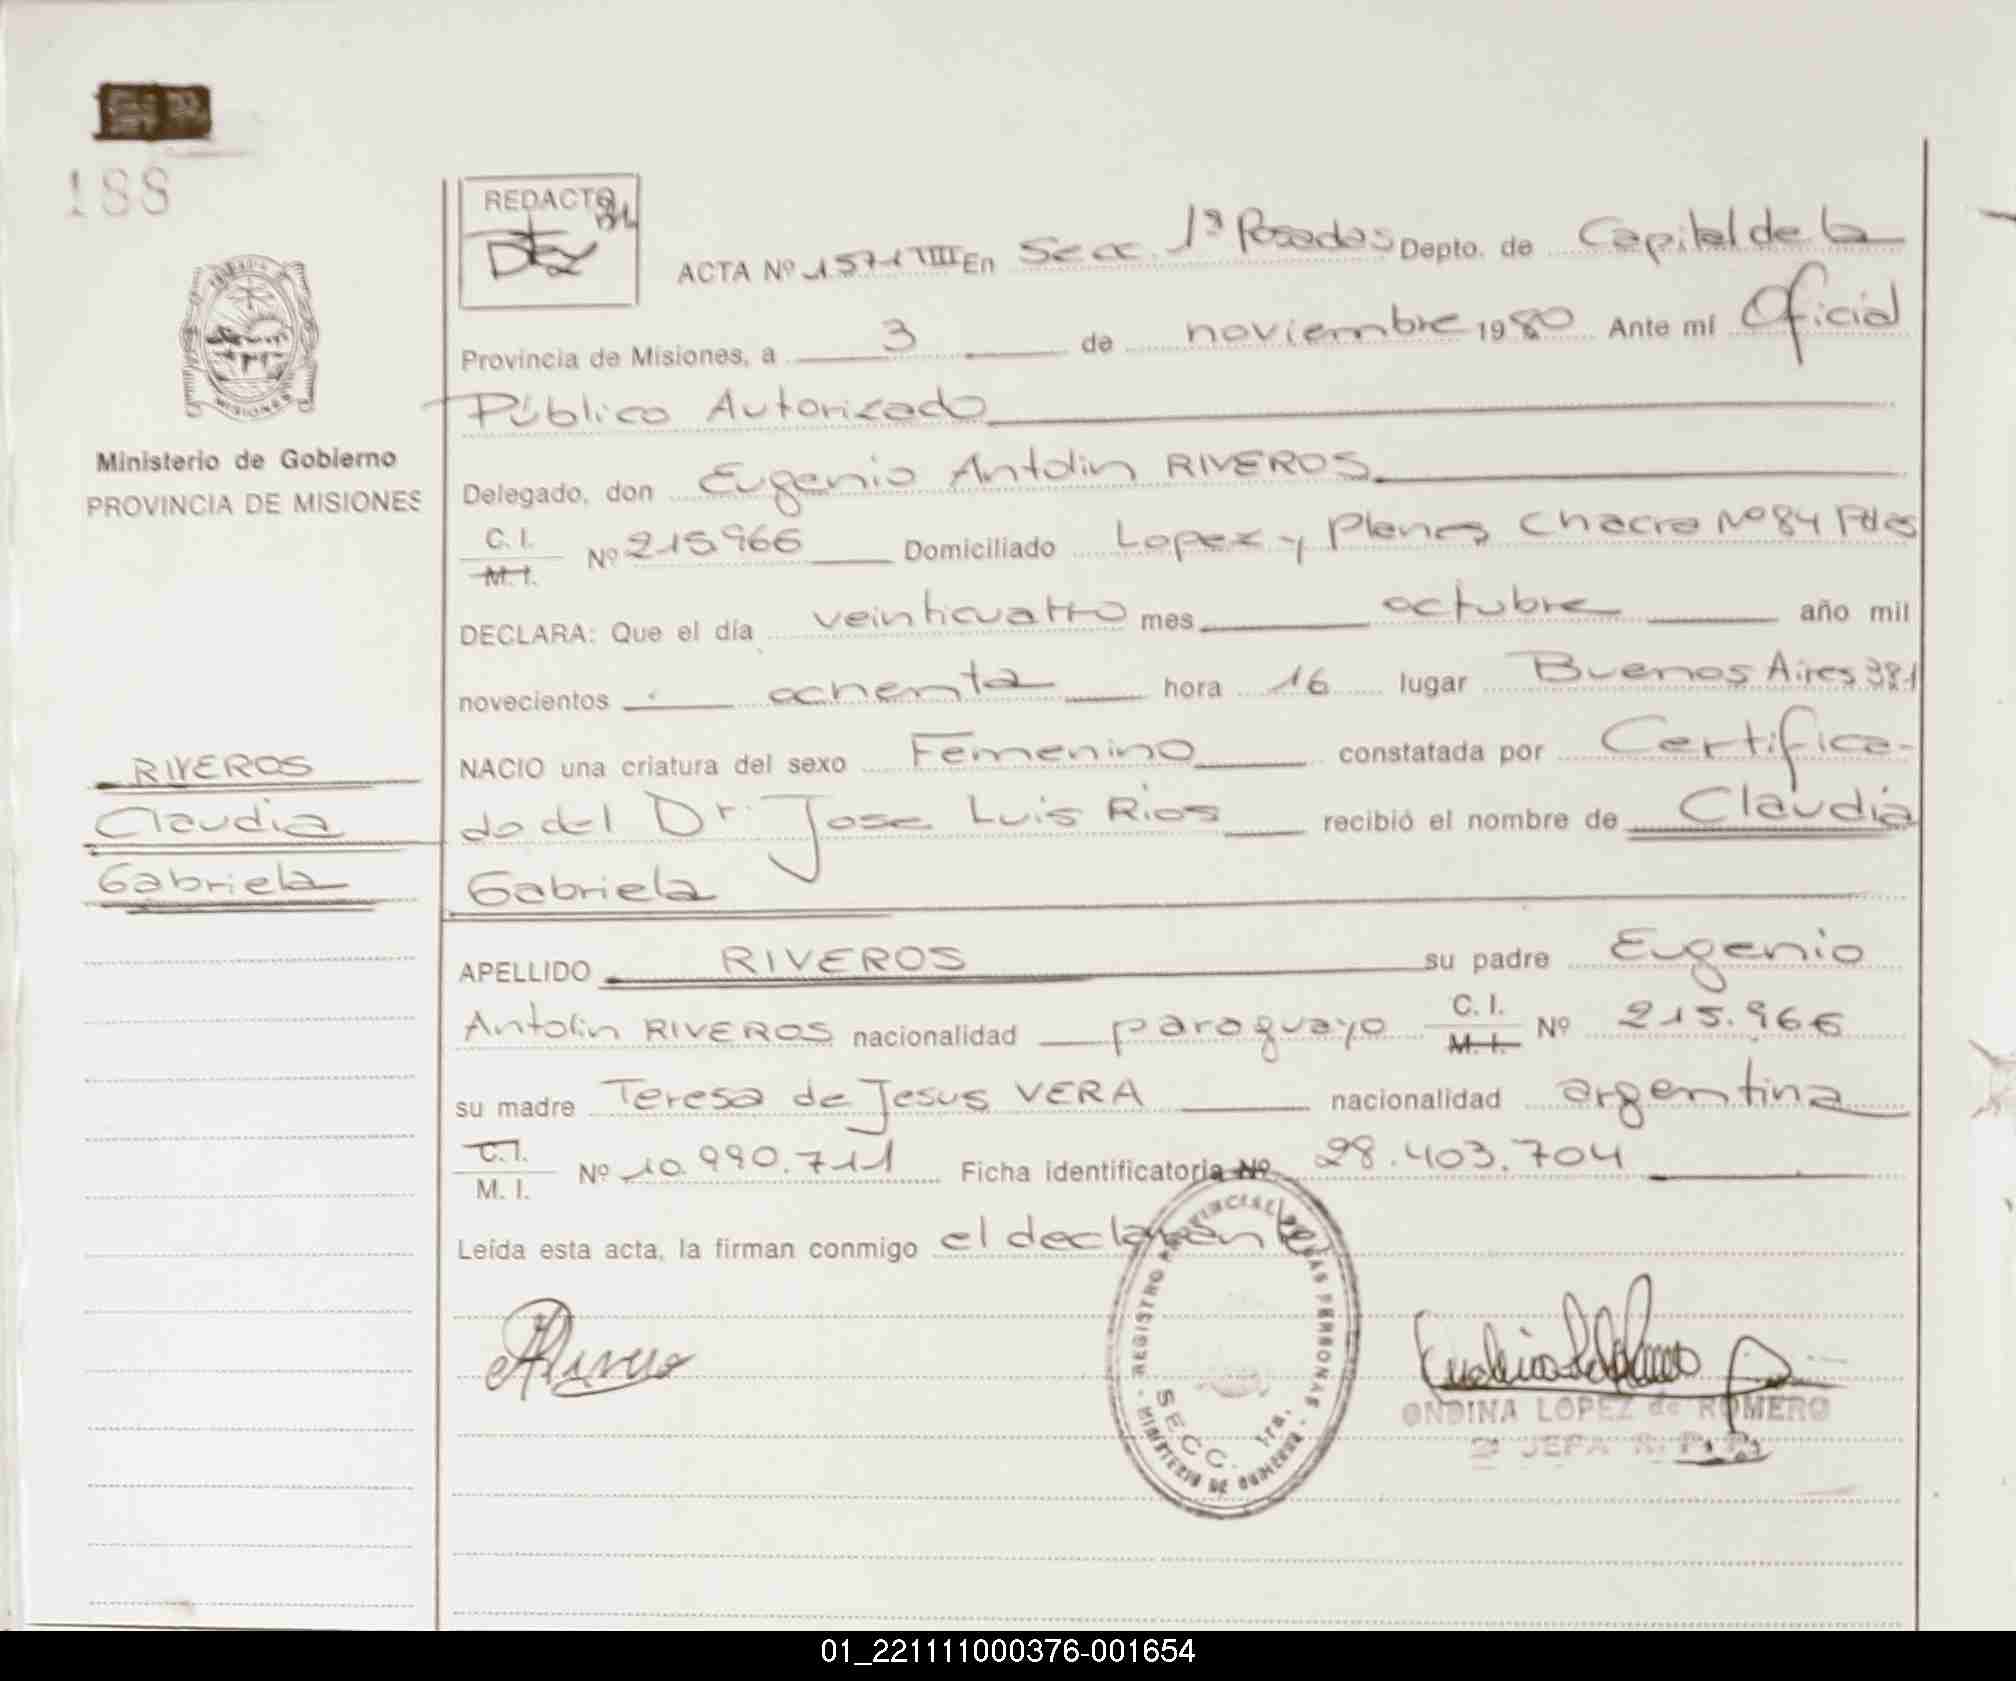 188
REDACTO
ACTA Nº 1571 VIII En Secc. 1ª Posadas Depto. de Capital de la
Provincia de Misiones, a 3 de noviembre 1980 Ante mí Oficial
Público Autorizado
MISIONES
Ministerio de Gobierno
PROVINCIA DE MISIONES
Delegado, don Eugenio Antolin RIVEROS
C. I.
M. I.
Nº 215.966 Domiciliado Lopez y Planes Chacra Nº 84 Pdas
DECLARA: Que el día veinticuatro mes octubre año mil
novecientos ochenta hora 16 lugar Buenos Aires 381
RIVEROS
Claudia
Gabriela
NACIO una criatura del sexo Femenino constatada por Certifica-
do del Dr. Jose Luis Rios recibió el nombre de Claudia
Gabriela
APELLIDO RIVEROS su padre Eugenio
Antolin RIVEROS nacionalidad paraguayo C. I. M. I. Nº 215.966
su madre Teresa de Jesus VERA nacionalidad argentina
C. I.
M. I.
Nº 10.990.711 Ficha identificatoria Nº 28.403.704
Leída esta acta, la firman conmigo el declarante
REGISTRO PROVINCIAL DE LAS PERSONAS
MINISTERIO DE GOBIERNO
SECC. 1ra.
ONDINA LOPEZ de ROMERO
JEFA R. P. P.
01_221111000376-001654